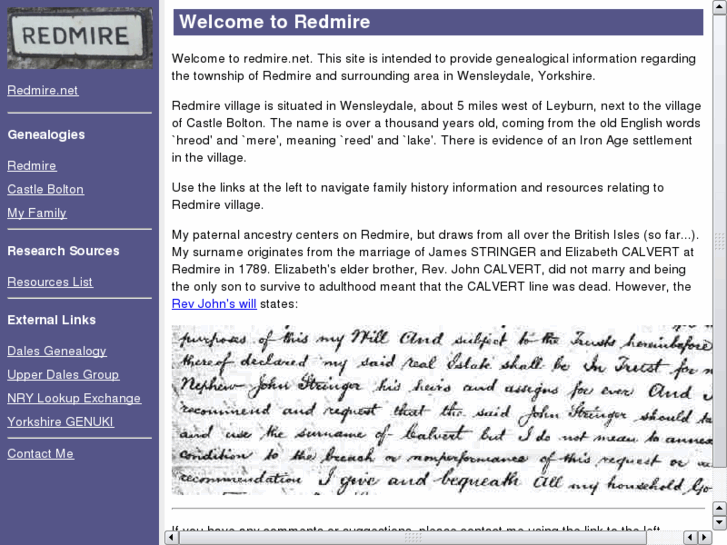 REDMIRE
Redmire.net
Genealogies
Redmire
Castle Bolton
My Family
Research Sources
Resources List
External Links
Dales Genealogy
Upper Dales Group
NRY Lookup Exchange
Yorkshire GENUKI
Contact Me
Welcome to Redmire
Welcome to redmire.net. This site is intended to provide genealogical information regarding
the township of Redmire and surrounding area in Wensleydale, Yorkshire.
Redmire village is situated in Wensleydale, about 5 miles west of Leyburn, next to the village
of Castle Bolton. The name is over a thousand years old, coming from the old English words
`hreod' and `mere', meaning `reed' and `lake'. There is evidence of an Iron Age settlement
in the village.
Use the links at the left to navigate family history information and resources relating to
Redmire village.
My paternal ancestry centers on Redmire, but draws from all over the British Isles (so far...).
My surname originates from the marriage of James STRINGER and Elizabeth CALVERT at
Redmire in 1789. Elizabeth's elder brother, Rev. John CALVERT, did not marry and being
the only son to survive to adulthood meant that the CALVERT line was dead. However, the
Rev John's will states:
purposes of this my Will And subject to the Trusts hereinbefore
thereof declared my said real Estate shall be In Trust for
Nephew John Stringer his heirs and assigns for ever And
recommend and request that the said John Stringer should
and use the surname of Calvert but I do not mean to
condition to the breach or nonperformance of this request or
recommendation I give and bequeath all my household
If you have any comments or suggestions, please contact me using the link to the left.